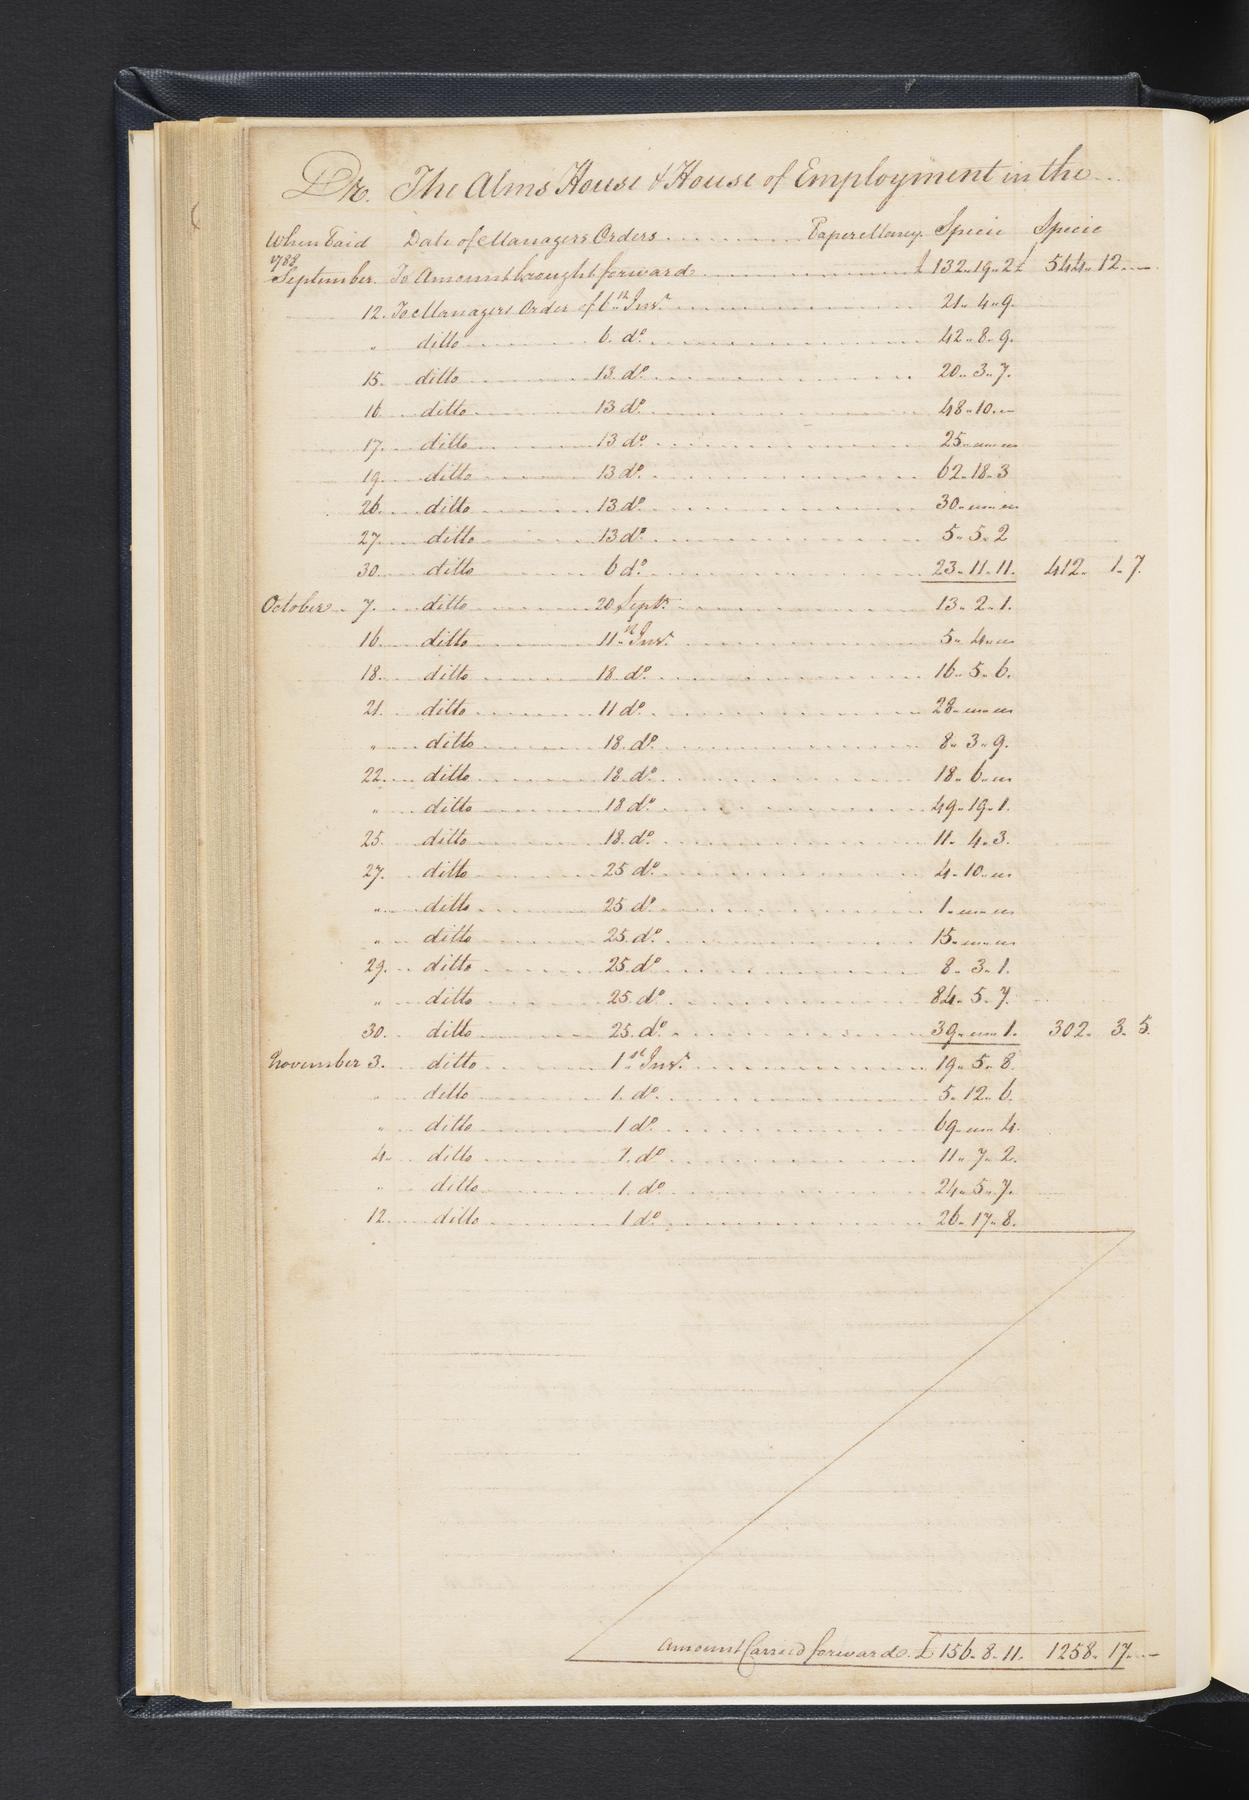 Dr. The Alms House & House of Employment in the ...
When Paid Date of Managers Orders .......... Paper Money. Specie Specie
1788
September. To Amount brought forward .......... £ 132..19..2 £ 544..12..—
12. To Managers Order of 6..th Inst. .......... 21.. 4..9.
" ditto .......... 6. do. .......... 42..8..9.
15. ditto .......... 13 do. .......... 20..3..7.
16 ditto .......... 13 do. .......... 48..10..—
17. ditto .......... 13 do. .......... 25..—..—
19. ditto .......... 13 do. .......... 62..18..3
26. ditto .......... 13 do. .......... 30..—..—
27. ditto .......... 13 do. .......... 5..5..2
30. ditto .......... 6 do. .......... 23..11..11. 412.. 1..7.
October .. 7. ditto .......... 20 Sept. .......... 13..2..1.
16. ditto .......... 11..th Inst. .......... 5..4..—
18. ditto .......... 18. do. .......... 16..5..6.
21. ditto .......... 11 do. .......... 28..—..—
" ditto .......... 18. do. .......... 8..3..9.
22. ditto .......... 18. do. .......... 18..6..—
" ditto .......... 18 do. .......... 49..19..1.
25. ditto .......... 18. do. .......... 11..4..3.
27. ditto .......... 25 do. .......... 4..10..—
" ditto .......... 25 do. .......... 1..—..—
" ditto .......... 25. do. .......... 15..—..—
29. ditto .......... 25. do. .......... 8..3..1.
" ditto .......... 25. do. .......... 84..5..7.
30. ditto .......... 25. do. .......... 39..—..1. 302.. 3..5.
November 3. ditto .......... 1..st Inst. .......... 19..5..8.
" ditto .......... 1. do. .......... 5..12..6.
" ditto .......... 1 do. .......... 69..—..4.
4. ditto .......... 1. do .......... 11..7..2.
" ditto .......... 1. do. .......... 24..5..7.
12. ditto .......... 1 do. .......... 26..17..8.
Amount Carried forward. £ 156..8..11. 1258..17..—